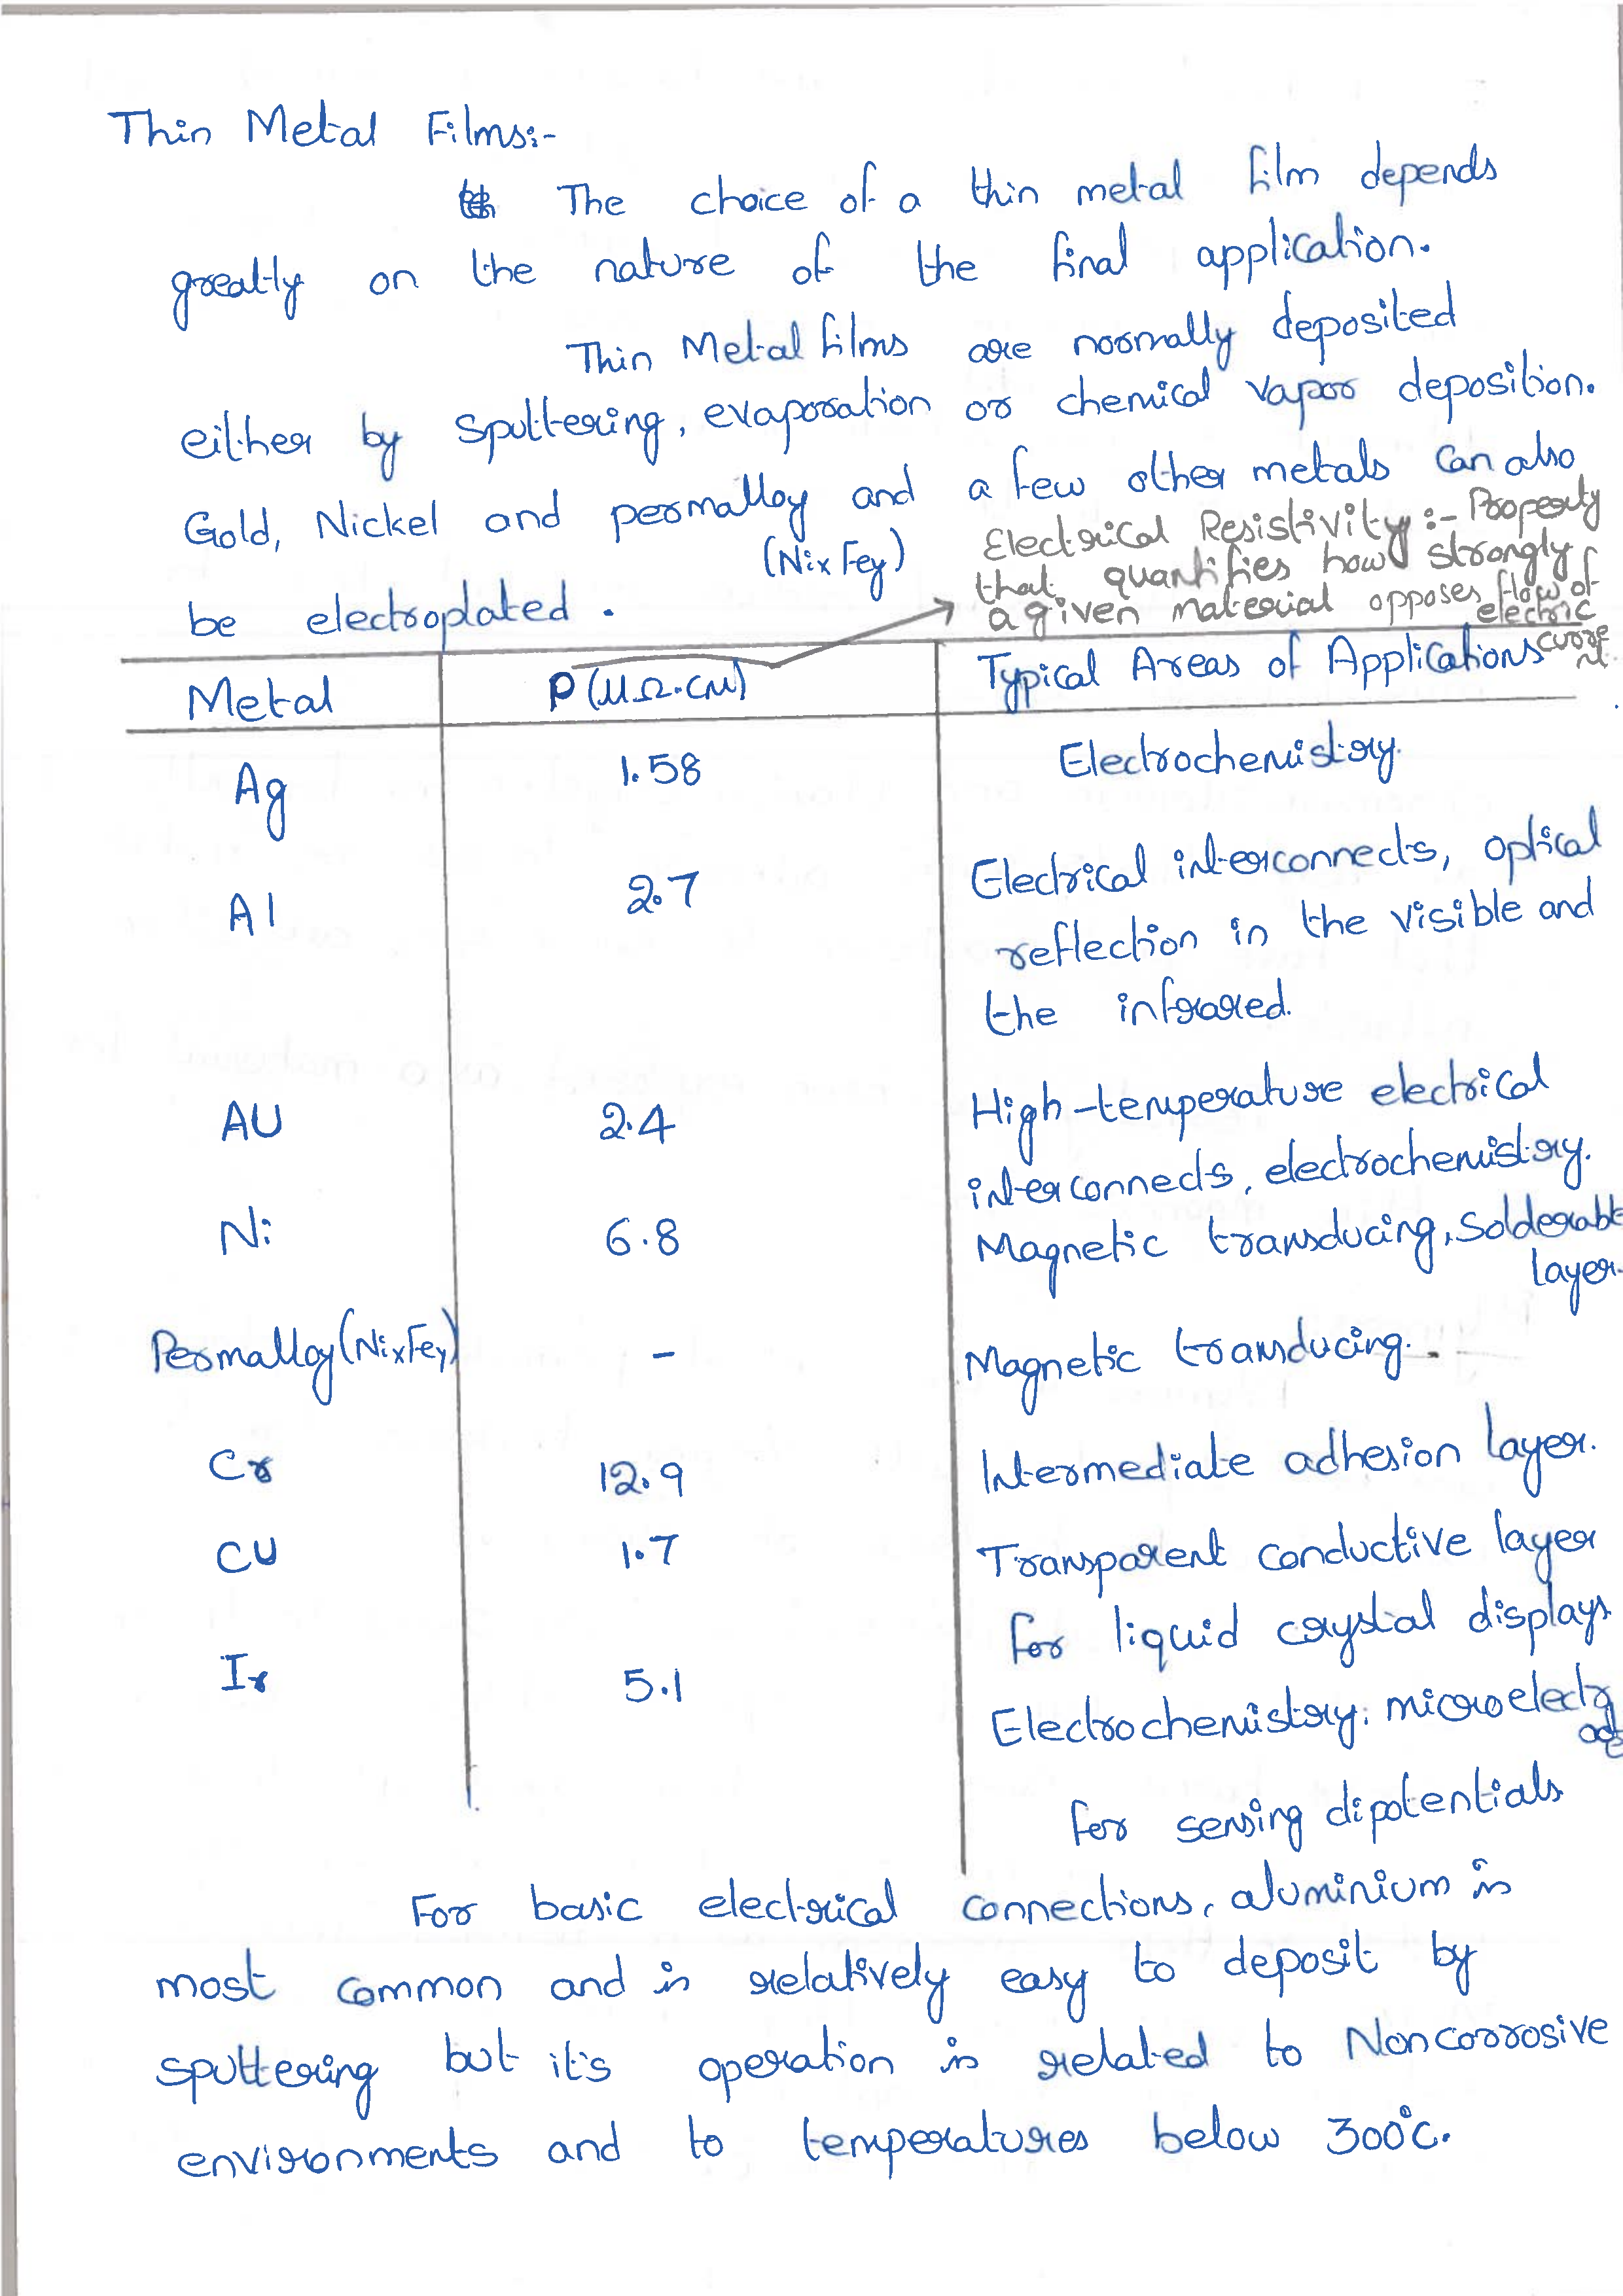 Thin Metal Films:-
The choice of a thin metal film depends
greatly on the nature of the final application.
Thin Metal films are normally deposited
either by sputtering, evaporation or chemical vapor deposition.
Gold, Nickel and permalloy and a few other metals can also
(NixFey)
be electroplated.
Electrical Resistivity:- Property
that quantifies how strongly
a given material opposes flow of
electric
current
Metal ρ(μΩ.cm) Typical Areas of Applications
Ag 1.58 Electrochemistry.
Al 2.7 Electrical interconnects, optical
reflection in the visible and
the infrared.
AU 2.4 High-temperature electrical
interconnects, electrochemistry.
Ni 6.8 Magnetic transducing, Solderable
layer.
Permalloy(NixFey) - Magnetic transducing.
Cr 12.9 Intermediate adhesion layer.
CU 1.7 Transparent conductive layer
for liquid crystal displays
Ir 5.1 Electrochemistry; microelectrode
for sensing dipotentials
For basic electrical connections, aluminium is
most common and is relatively easy to deposit by
sputtering but it's operation is related to Noncorrosive
environments and to temperatures below 300°c.